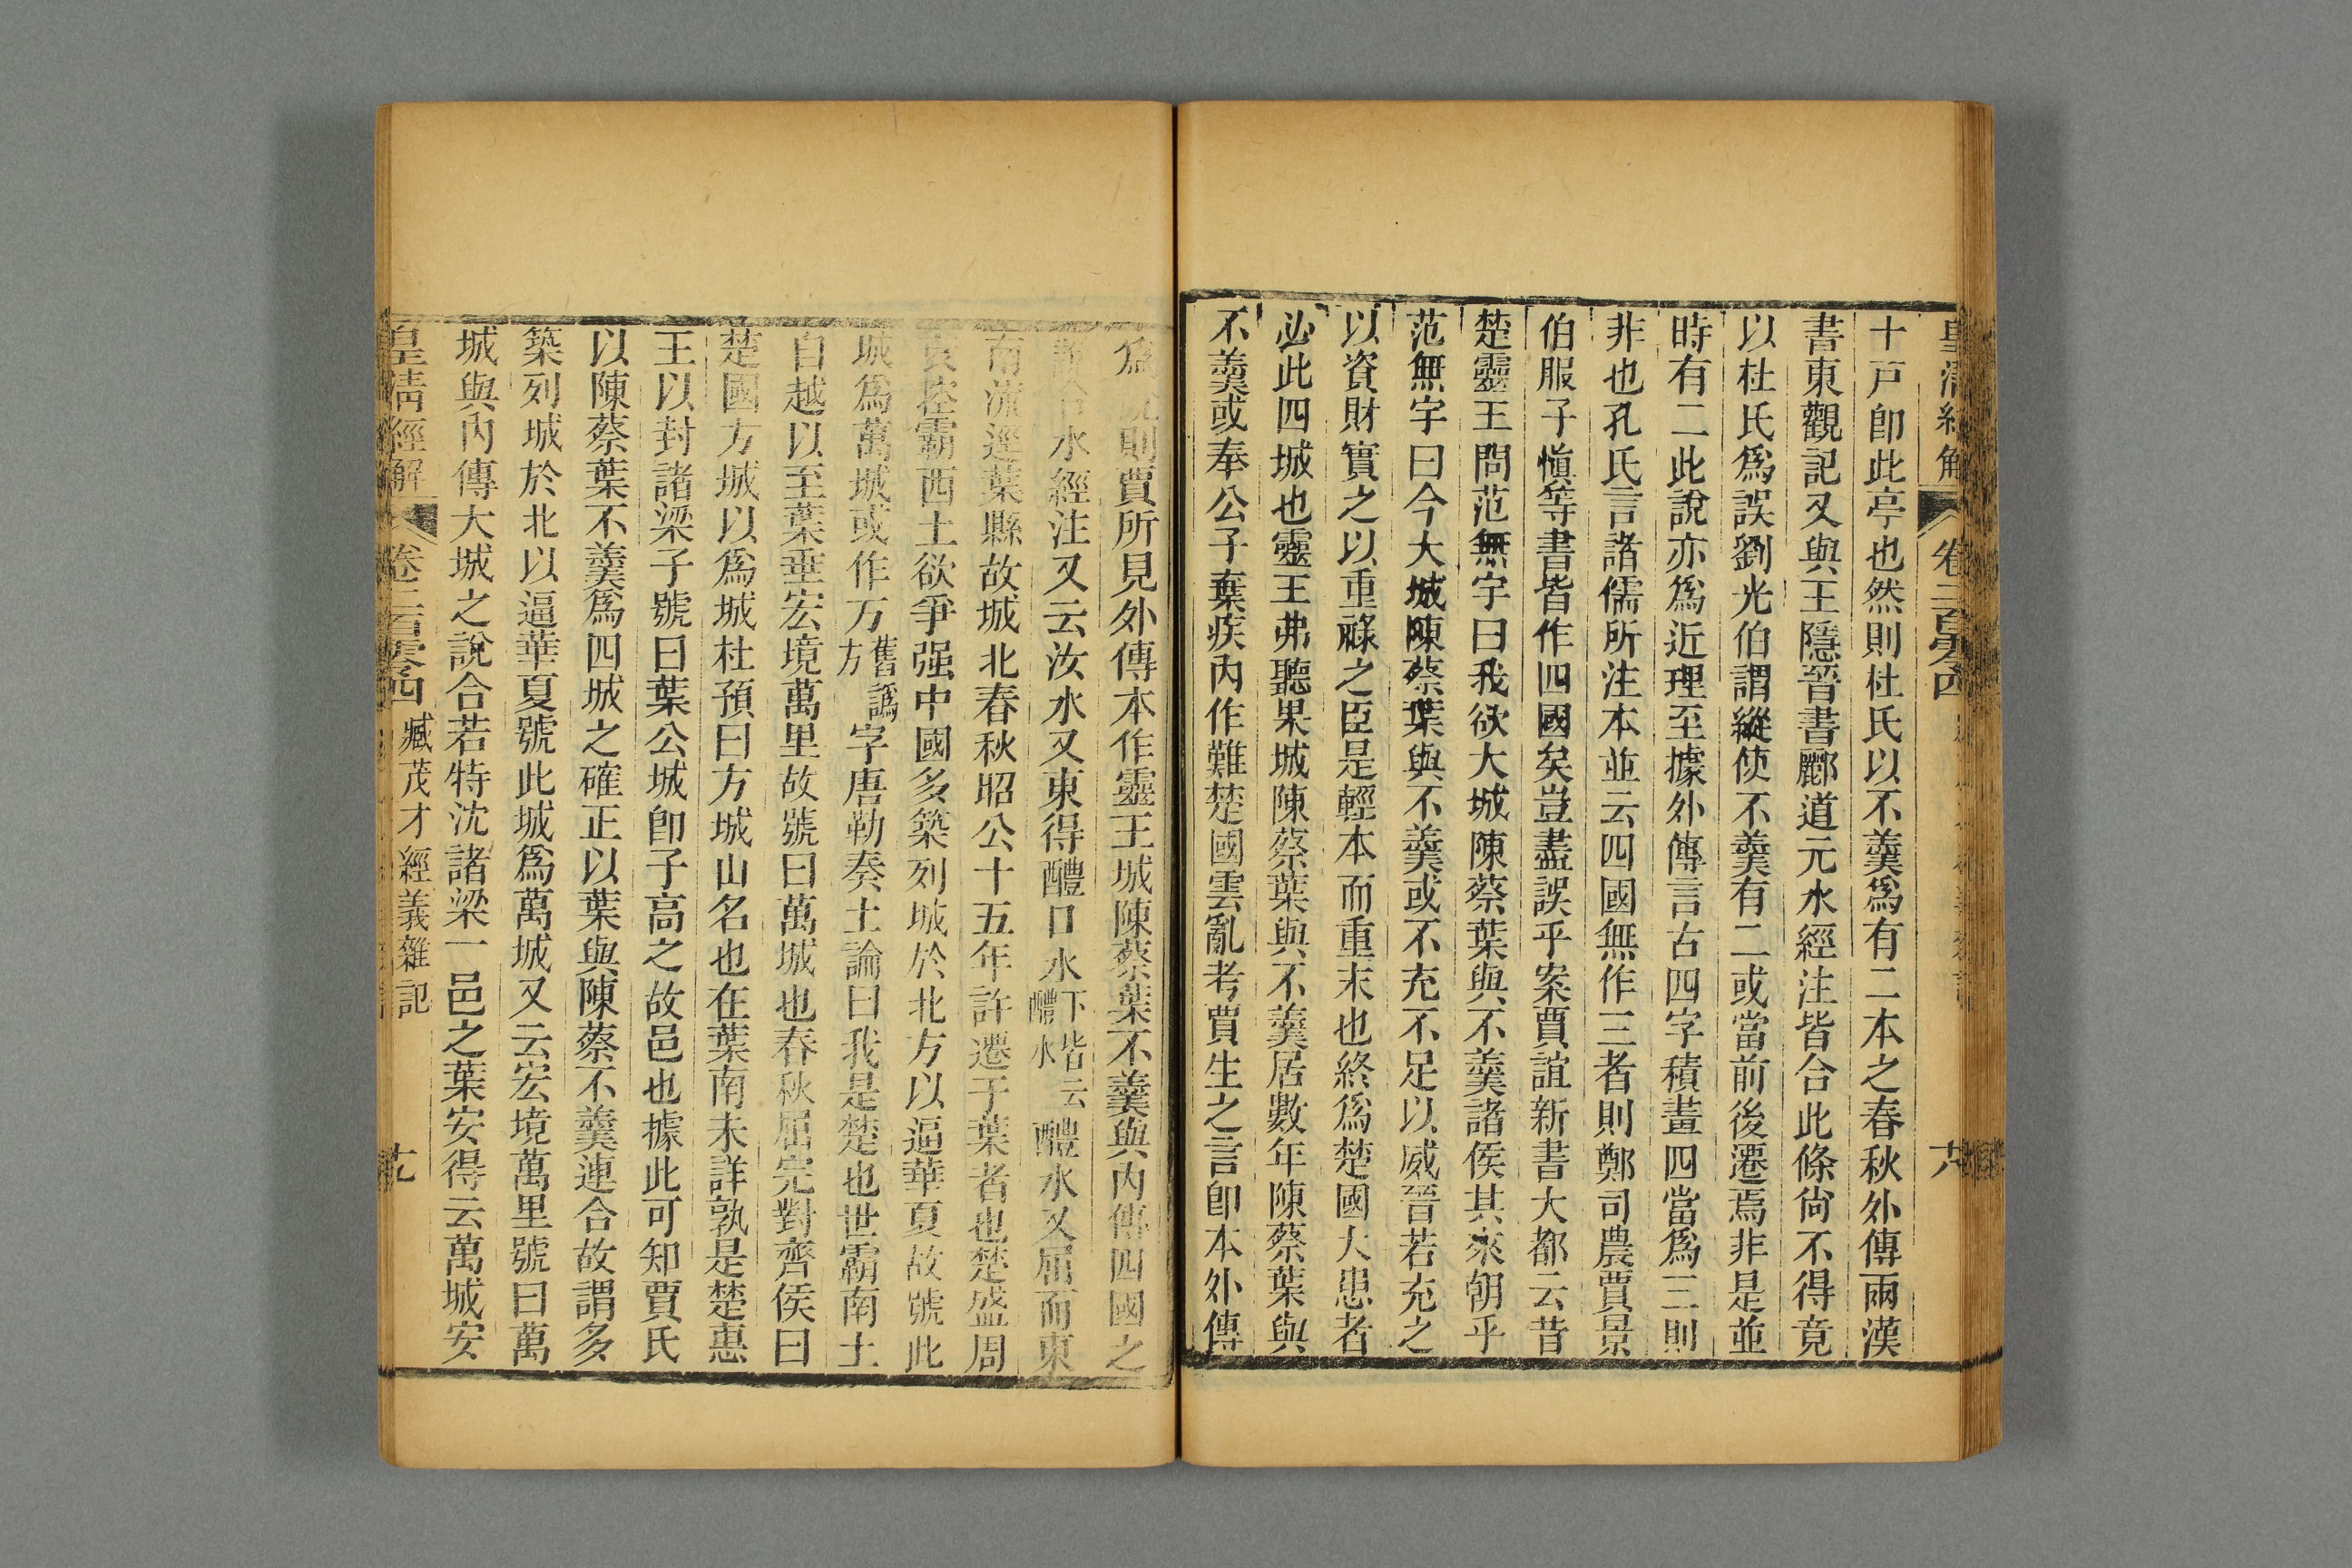 皇清經解 卷二百零四 六
十戸卽此亭也然則杜氏以不羹爲有二本之春秋外傳兩漢
書東觀記又與王隱晉書酈道元水經注皆合此條尙不得竟
以杜氏爲誤劉光伯謂縱使不羹有二或當前後遷焉非是並
時有二此說亦爲近理至據外傳言古四字積畫四當爲三則
非也孔氏言諸儒所注本並云四國無作三者則鄭司農賈景
伯服子愼等書皆作四國矣豈盡誤乎案賈誼新書大都云昔
楚靈王問范無宇曰我欲大城陳蔡葉與不羹諸侯其來朝乎
范無宇曰今大城陳蔡葉與不羹或不充不足以威晉若充之
以資財實之以重祿之臣是輕本而重末也終爲楚國大患者
必此四城也靈王弗聽果城陳蔡葉與不羹居數年陳蔡葉與
不羹或奉公子棄疾內作難楚國雲亂考賈生之言卽本外傳
爲則賈所見外傳本作靈王城陳蔡葉不羹與內傳四國之
合水經注又云汝水又東得醴口水下皆云醴水醴水又屈而東
南流逕葉縣故城北春秋昭公十五年許遷于葉者也楚盛周
衰控霸西土欲爭强中國多築列城於北方以逼華夏故號此
城爲萬城或作万舊譌方字唐勒奏土論曰我是楚也世霸南土
自越以至葉垂宏境萬里故號曰萬城也春秋屈完對齊侯曰
楚國方城以爲城杜預曰方城山名也在葉南未詳孰是楚惠
王以封諸梁子號曰葉公城卽子高之故邑也據此可知賈氏
以陳蔡葉不羹爲四城之確正以葉與陳蔡不羹連合故謂多
築列城於北以逼華夏號此城爲萬城又云宏境萬里號曰萬
城與內傳大城之說合若特沈諸梁一邑之葉安得云萬城安
皇清經解 卷二百零四 臧茂才經義雜記 九